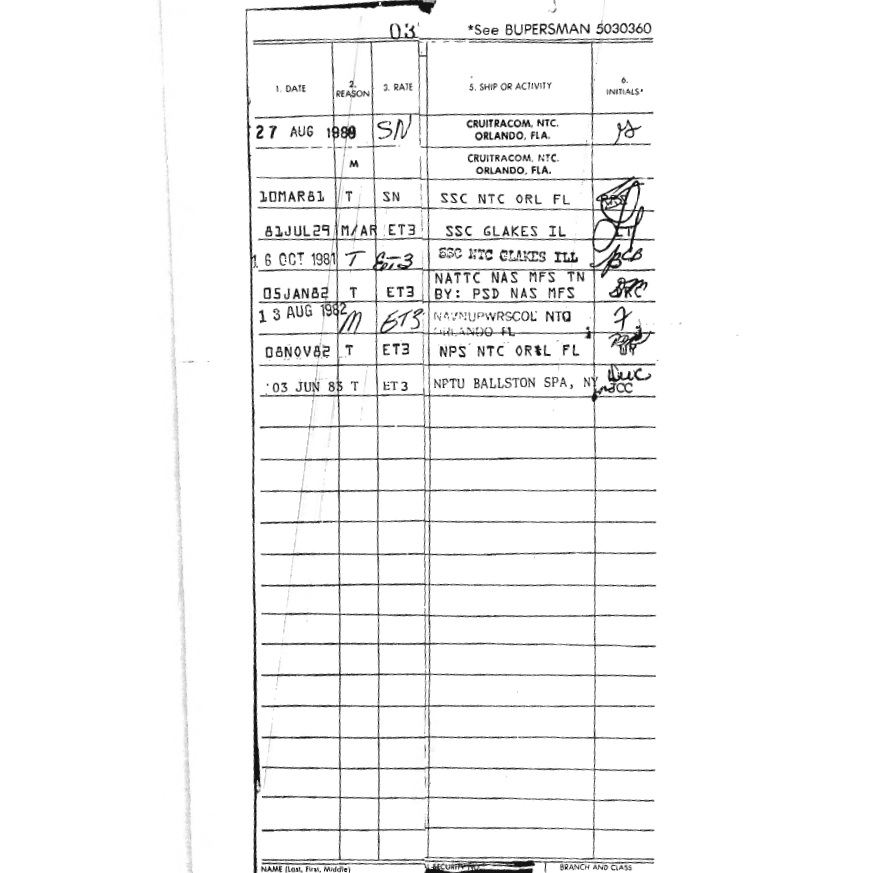 03
*See BUPERSMAN 5030360
1. DATE 2. REASON 3. RATE 5. SHIP OR ACTIVITY 6. INITIALS*
27 AUG 1980 SN CRUITRACOM, NTC.
ORLANDO, FLA.
M CRUITRACOM, NTC.
ORLANDO, FLA.
10MAR81 T SN SSC NTC ORL FL
81JUL29 M/AR ET3 SSC GLAKES IL
16 OCT 1981 T ET3 SSC NTC GLAKES ILL
NATTC NAS MFS TN
05JAN82 T ET3 BY: PSD NAS MFS
13 AUG 1982 M ET3 NAVNUPWRSCOL NTC
ORLANDO FL
08NOV82 T ET3 NPS NTC ORL FL
03 JUN 83 T ET3 NPTU BALLSTON SPA, NY
NAME (Last, First, Middle) SECURITY NO. BRANCH AND CLASS